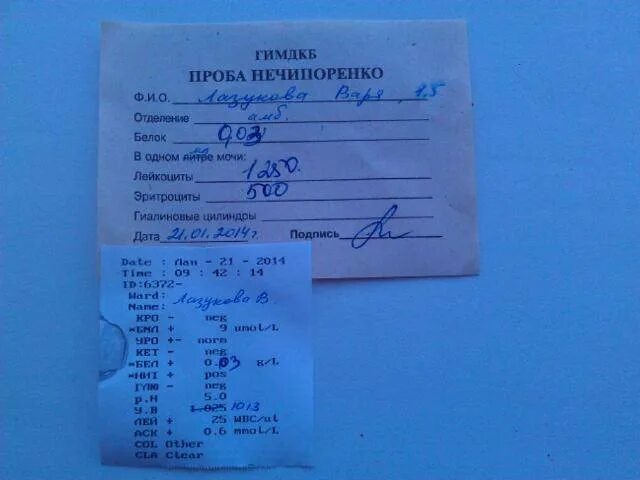 ГИМДКБ
ПРОБА НЕЧИПОРЕНКО
Ф.И.О. Лазукова Варя, 1,5
Отделение амб.
Белок 0,03
В одном литре мл мочи:
Лейкоциты 1250.
Эритроциты 500
Гиалиновые цилиндры
Дата 21.01.2014г. Подпись
Date : Йан - 21 - 2014
Time : 09 : 42 : 14
ID:6372-
Ward:
Name: Лазукова В.
КРО - neg
*БИЛ + 9 umol/L
УРО +- norm
КЕТ - neg
*БЕЛ + 0.03 g/L
*НИТ + pos
ГЛЮ - neg
p.H 5.0
У.В 1.025 1013
ЛЕЙ + 25 WBC/ul
АСК + 0.6 mmol/L
COL Other
CLA Clear